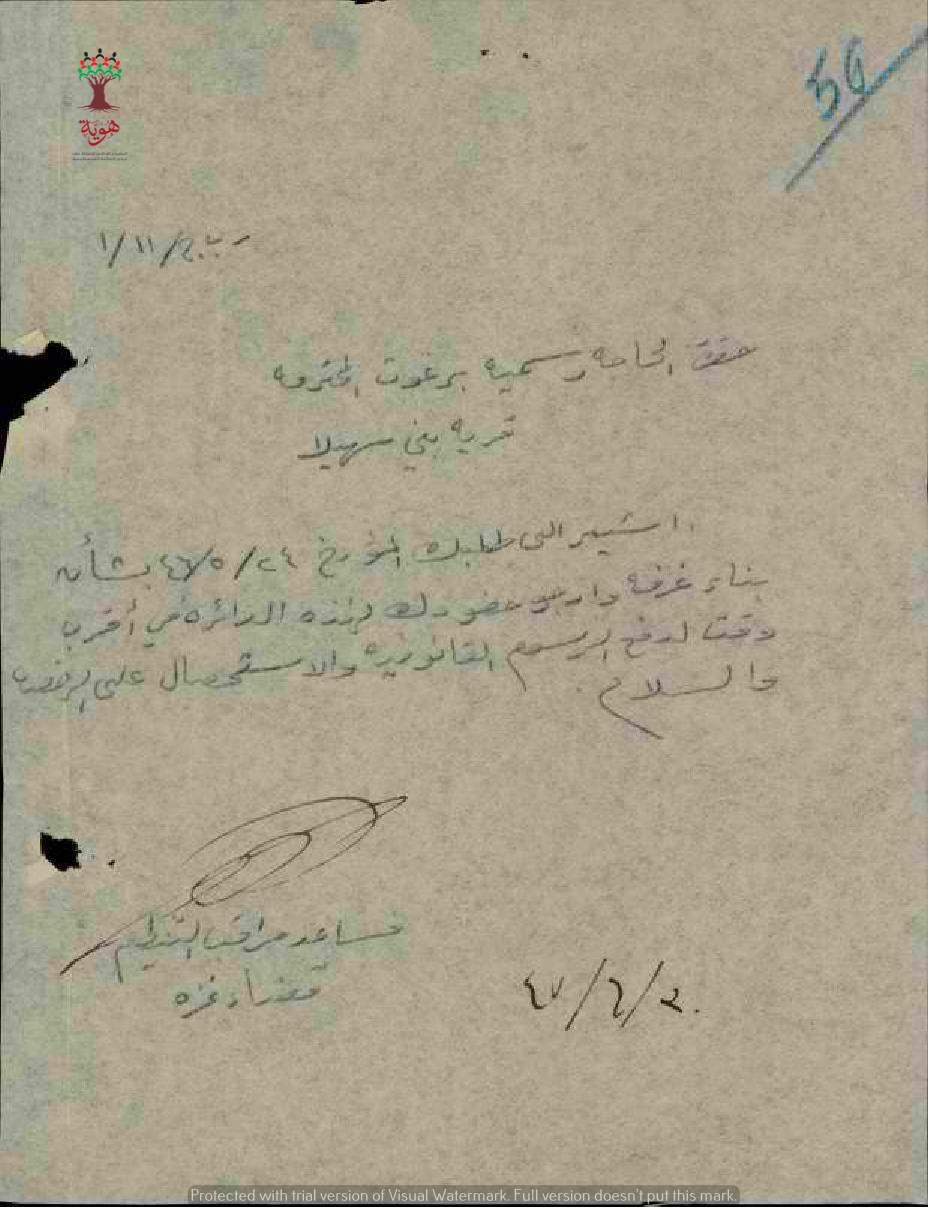 هوية
59
١/١١/
حضرة الحاجه رسميه برغوت المحترمه
قرية بني سهيلا
اشير الى طلبك المؤرخ ٢٤/٥/٤٦ بشأن
بناء غرفه وارجو حضورك لهذه الدائره في أقرب
وقت لدفع الرسوم القانونيه والاستحصال على الرخصه
والسلام.
مساعد مراقب التنظيم
قضاء غزه
٤٧/٦/٢٠
Protected with trial version of Visual Watermark. Full version doesn't put this mark.